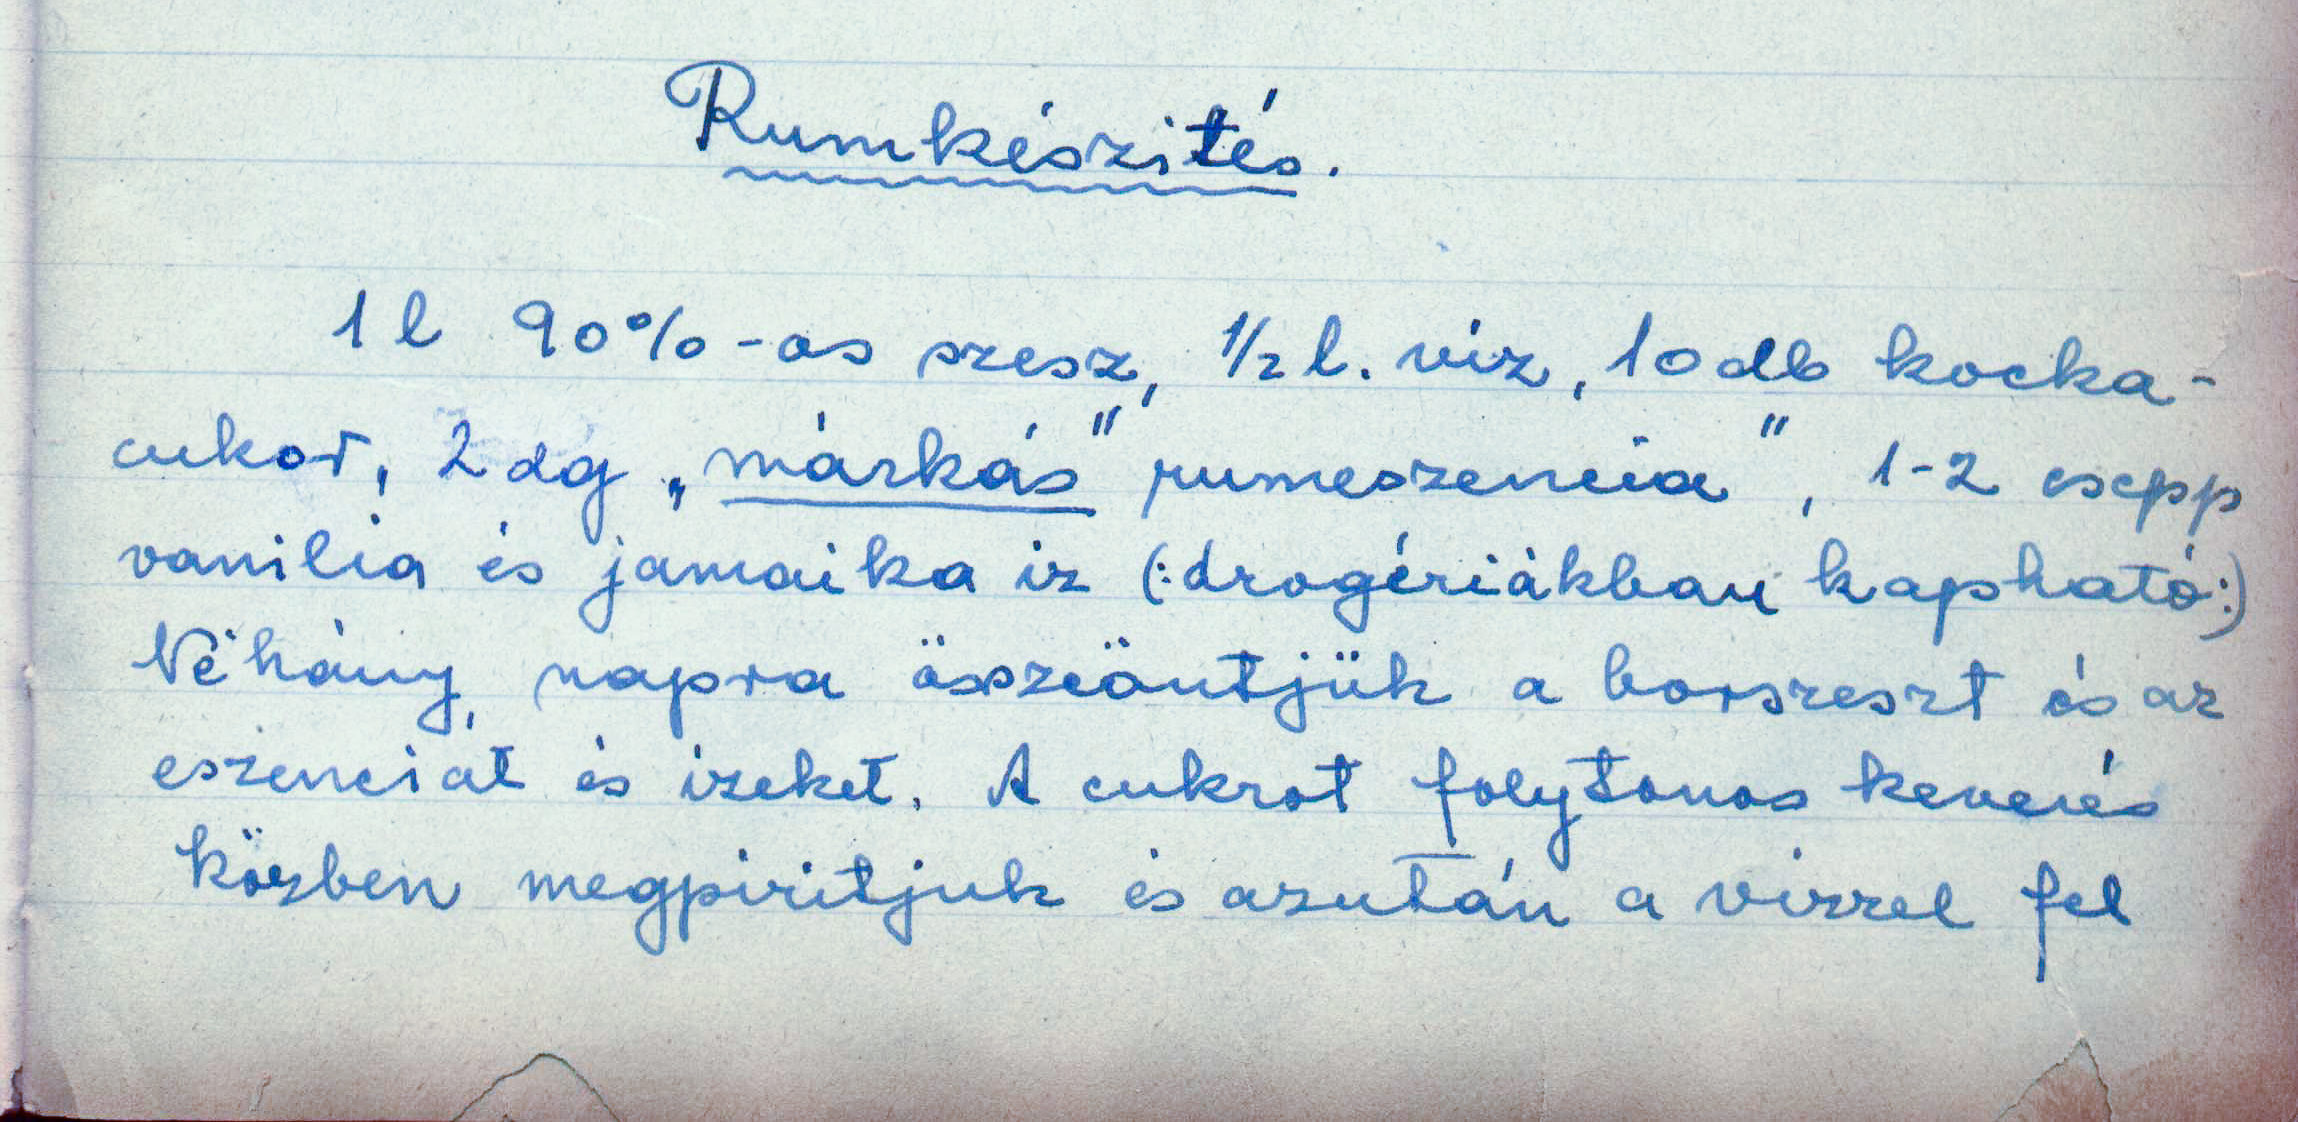 Rumkészités.
1 l 90%-os szesz, 1/2 l. viz, 10 db kocka-
cukor, 2 dg „márkás" rumeszencia", 1-2 csepp
vanilia és jamaika iz (:drogériákban kapható:)
Néhány napra összeöntjük a borszeszt és az
eszenciát és izeket. A cukrot folytonos keverés
közben megpiritjuk és azután a vizzel fel